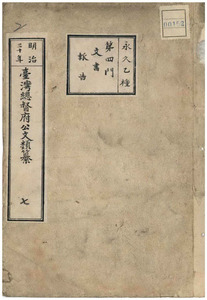 永久乙種
第四門
文書
報告
明治
三十年
臺灣總督府公文類纂
七